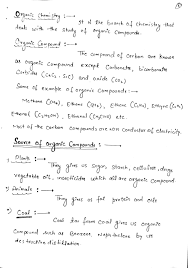 Organic Chemistry :—→
It is the branch of chemistry that
deals with the study of organic compounds.
Organic Compound :—→
The compound of carbon are known
as organic compound except Carbonate, bicarbonate
Carbide (CaC₂, SiC) and oxide (CO₂)
Some of example of organic compounds -
Methane (CH₄), Ethane (C₂H₆), Ethene (C₂H₄),
Ethanol (C₂H₅OH), Ethanal (CH₃CHO) etc
Most of the carbon compounds are non conductor of electricity.
Source of Organic Compounds :—→
Plants :—→
They gives us sugar, starch, cellulose, drug
vegetable oil, insecticides which all are organic compound.
Animals :—→
They gives us fat protein and
Coal :—→
Coal for form coal gives us organic
Compound such as Benzene, Naphthalene by its
destructive distillation